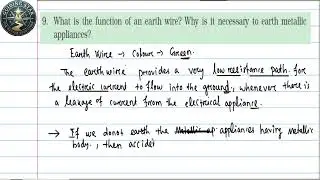 9. What is the function of an earth wire? Why is it necessary to earth metallic
appliances?
Earth Wire → Colour → Green.
The earth wire provides a very low resistance path for
the electric current to flow into the ground, whenever there is
a leakage of current from the electrical appliance.
→ If we donot earth the Metallic ap appliances having metallic
body., then accide